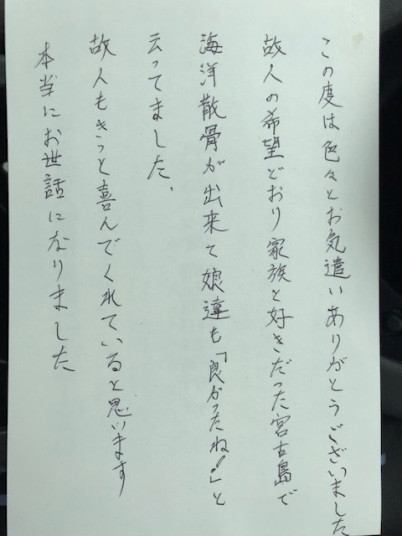 この度は色々とお気遣いありがとうございました
故人の希望どおり家族と好きだった宮古島で
海洋散骨が出来て娘達も「良かったね!」と
云ってました、
故人もきっと喜んでくれていると思います
本当にお世話になりました